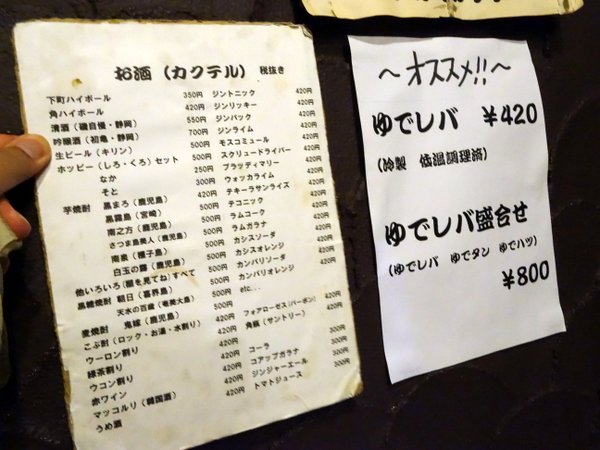 お酒（カクテル） 税抜き
下町ハイボール 350円
角ハイボール 420円
清酒（磯自慢・静岡） 550円
吟醸酒（初亀・静岡） 700円
生ビール（キリン） 500円
ホッピー（しろ・くろ）セット 500円
なか 250円
そと 300円
芋焼酎 黒まろ（鹿児島） 420円
黒霧島（宮崎） 500円
南之方（鹿児島） 500円
さつま島美人（鹿児島） 500円
南泉（種子島） 500円
白玉の露（鹿児島） 500円
他いろいろ（棚を見てね）すべて 500円
黒糖焼酎 朝日（喜界島） 500円
天水の百歳（奄美大島） 500円
麦焼酎 鬼嫁（鹿児島）
こぶ酎（ロック・お湯・水割り） 420円
ウーロン割り 420円
緑茶割り 420円
ウコン割り 420円
赤ワイン 420円
マッコルリ（韓国酒） 420円
うめ酒 420円
ジントニック 420円
ジンリッキー 420円
ジンバック 420円
ジンライム 420円
モスコミュール 420円
スクリュードライバー 420円
ブラッディマリー 420円
ウォッカライム 420円
テキーラサンライズ 420円
テコニック 420円
ラムコーク 420円
ラムガラナ 420円
カシスソーダ 420円
カシスオレンジ 420円
カンパリソーダ 420円
カンパリオレンジ 420円
etc...
フォアローゼス（バーボン） 420円
角瓶（サントリー） 420円
コーラ 300円
コアップガラナ 300円
ジンジャーエール 300円
トマトジュース 300円
～オススメ!!～
ゆでレバ ¥420
（冷製 低温調理済）
ゆでレバ盛合せ
（ゆでレバ ゆでタン ゆでハツ）
¥800